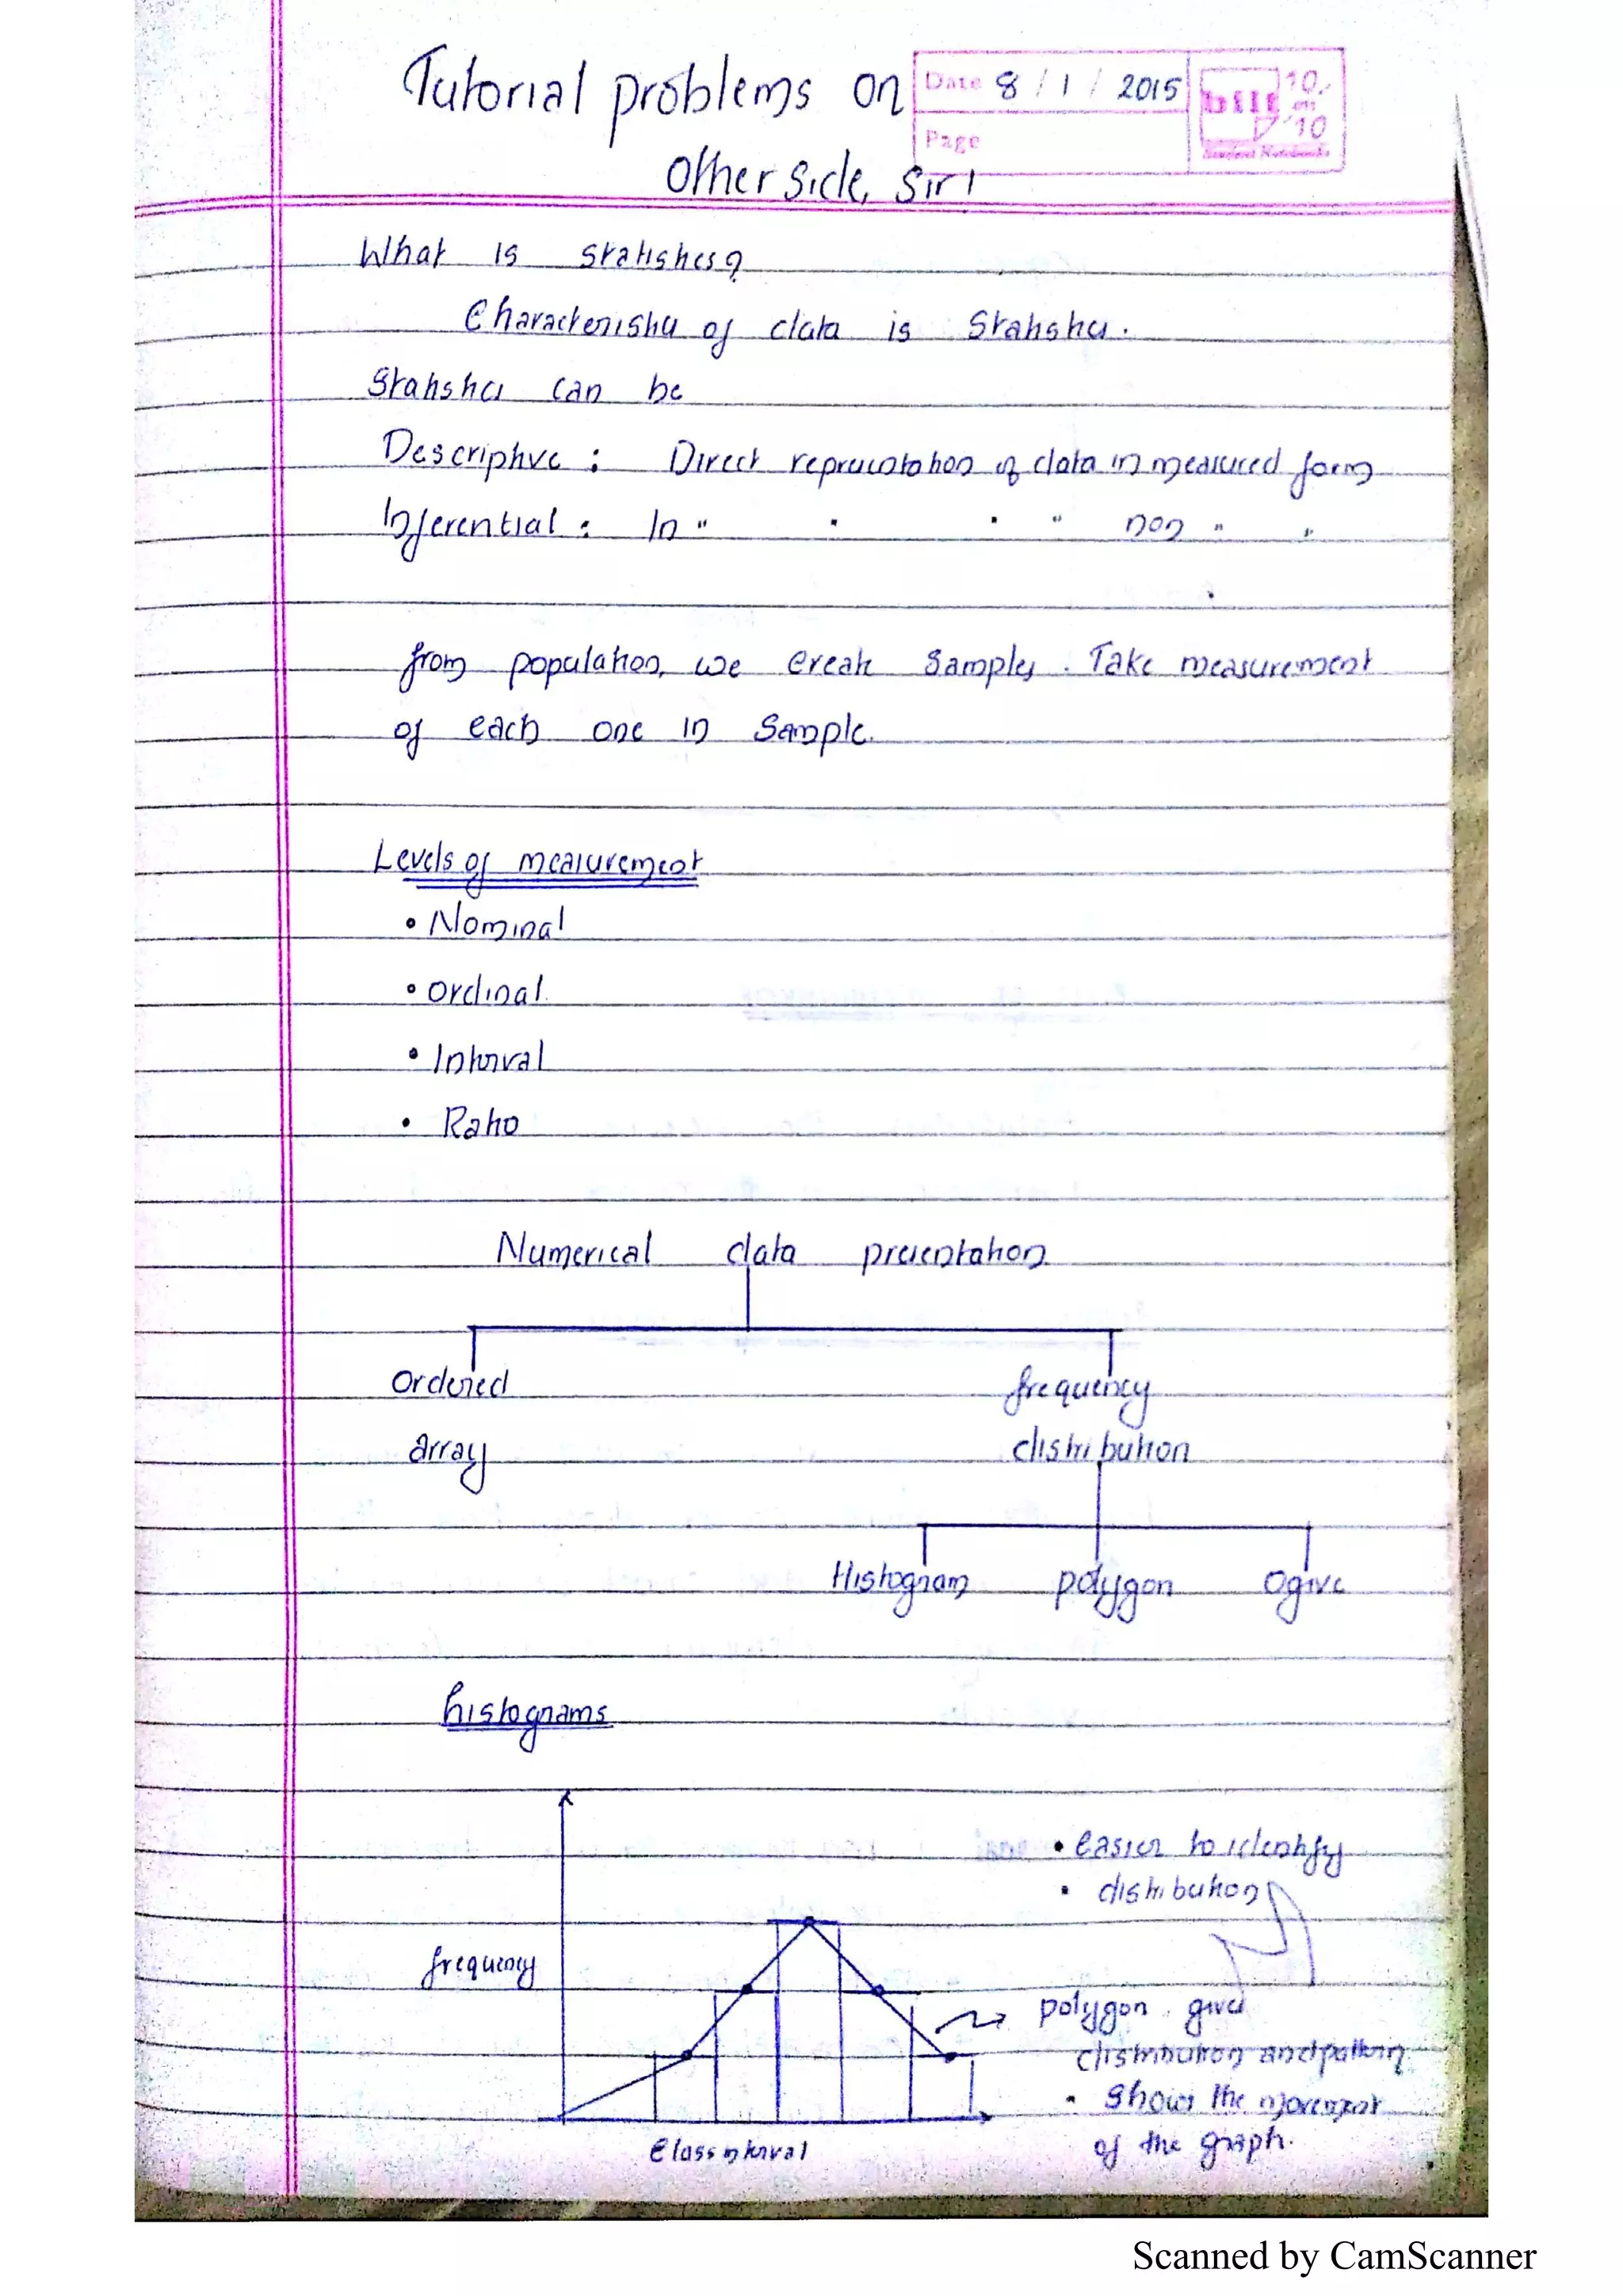 Tutorial problems on
other side, sir!
Date 8 / 1 / 2015
Page
bilt
Student Notebooks
What is statistics?
Characteristics of data is Statistics.
Statistics can be
Descriptive : Direct representation of data in measured form
Inferential : In " " " " non " "
from population, we create samples. Take measurement
of each one in sample.
Levels of measurement
• Nominal
• ordinal
• Interval
• Ratio
Numerical data presentation
Ordered array
frequency distribution
Histogram polygon Ogive
histograms
• easier to identify
• distribution
frequency
polygon gives
distribution and pattern
• shows the movement
of the graph.
Class interval
Scanned by CamScanner